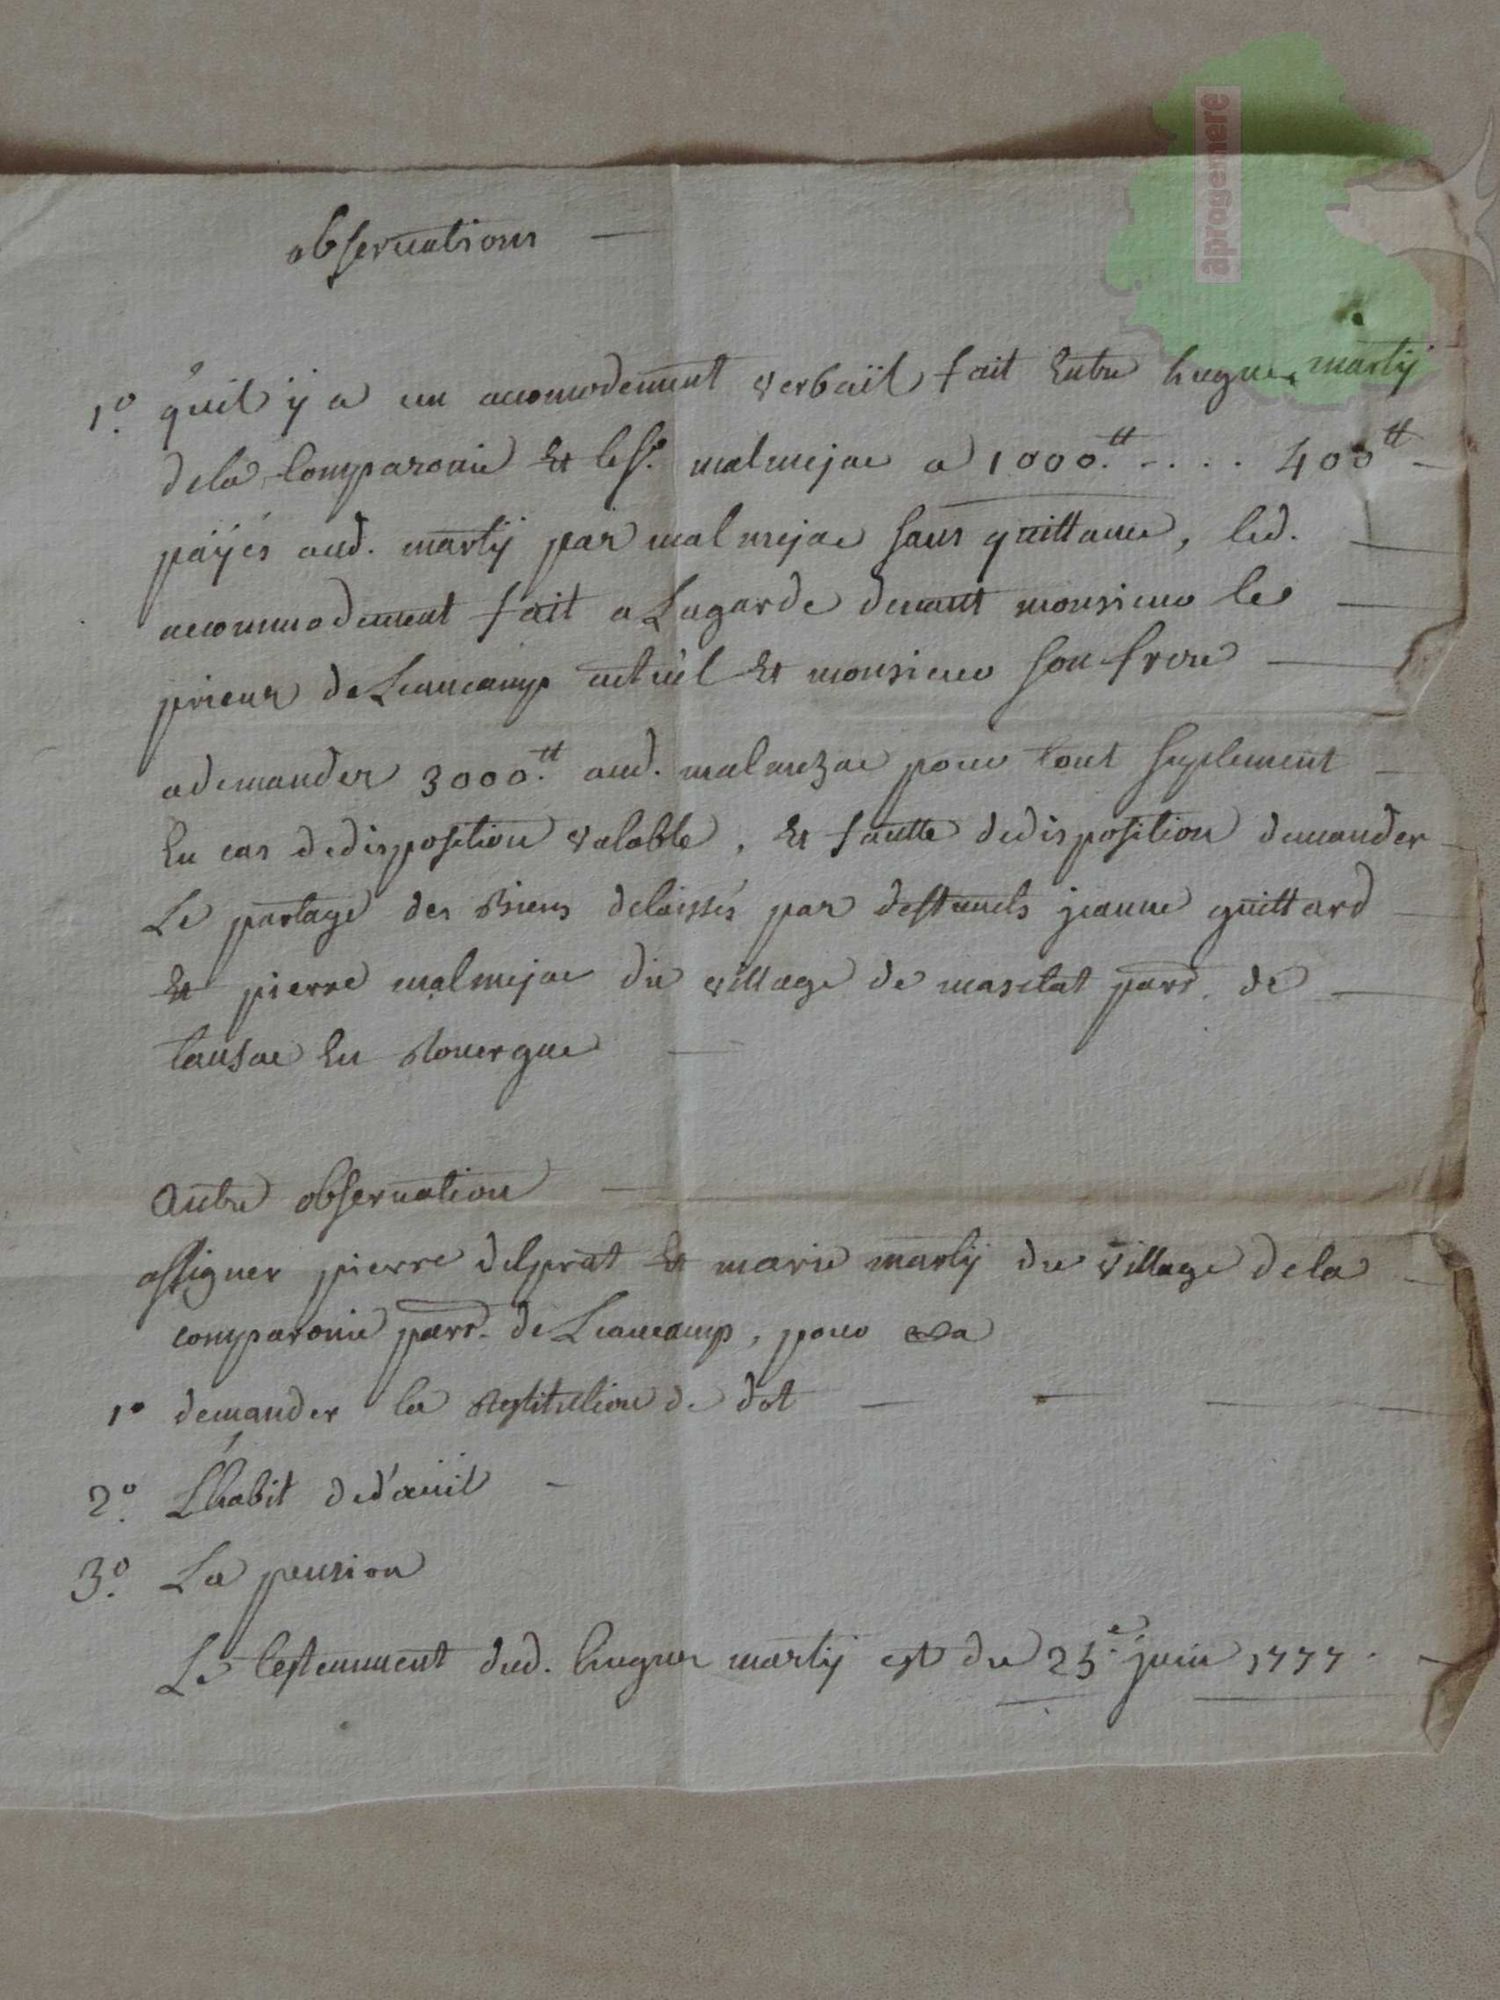 aprogemere
observations
1° qu'il y a un acomodement verbail fait Entre hugues martÿ
dela Comparonie Et le sr. malmejac a 1000.tt .... 400tt
païjés aud. martÿ par malmejac sans quittance, led.
accommodement fait a Lagarde devant monsieur le
prieur de Leaucamp actuel Et monsieur son frere
a demander 3000.tt aud. malmezac pour tout suplement
En cas de disposition valable, Et fautte de disposition demander
Le partage des Biens delaissés par deffuncts jeanne guittard
Et pierre malmejac du village de mascelat parr. de
taussac En Rouergue
Autre observation
assigner pierre delprat Et marie martÿ du village dela
comparonie parr. de Leaucamp, pour
1° demander la Restitution de dot
2° L'habit de d'euil
3° La pension
Le testemment dud. hugues martÿ est du 25e juin 1777.